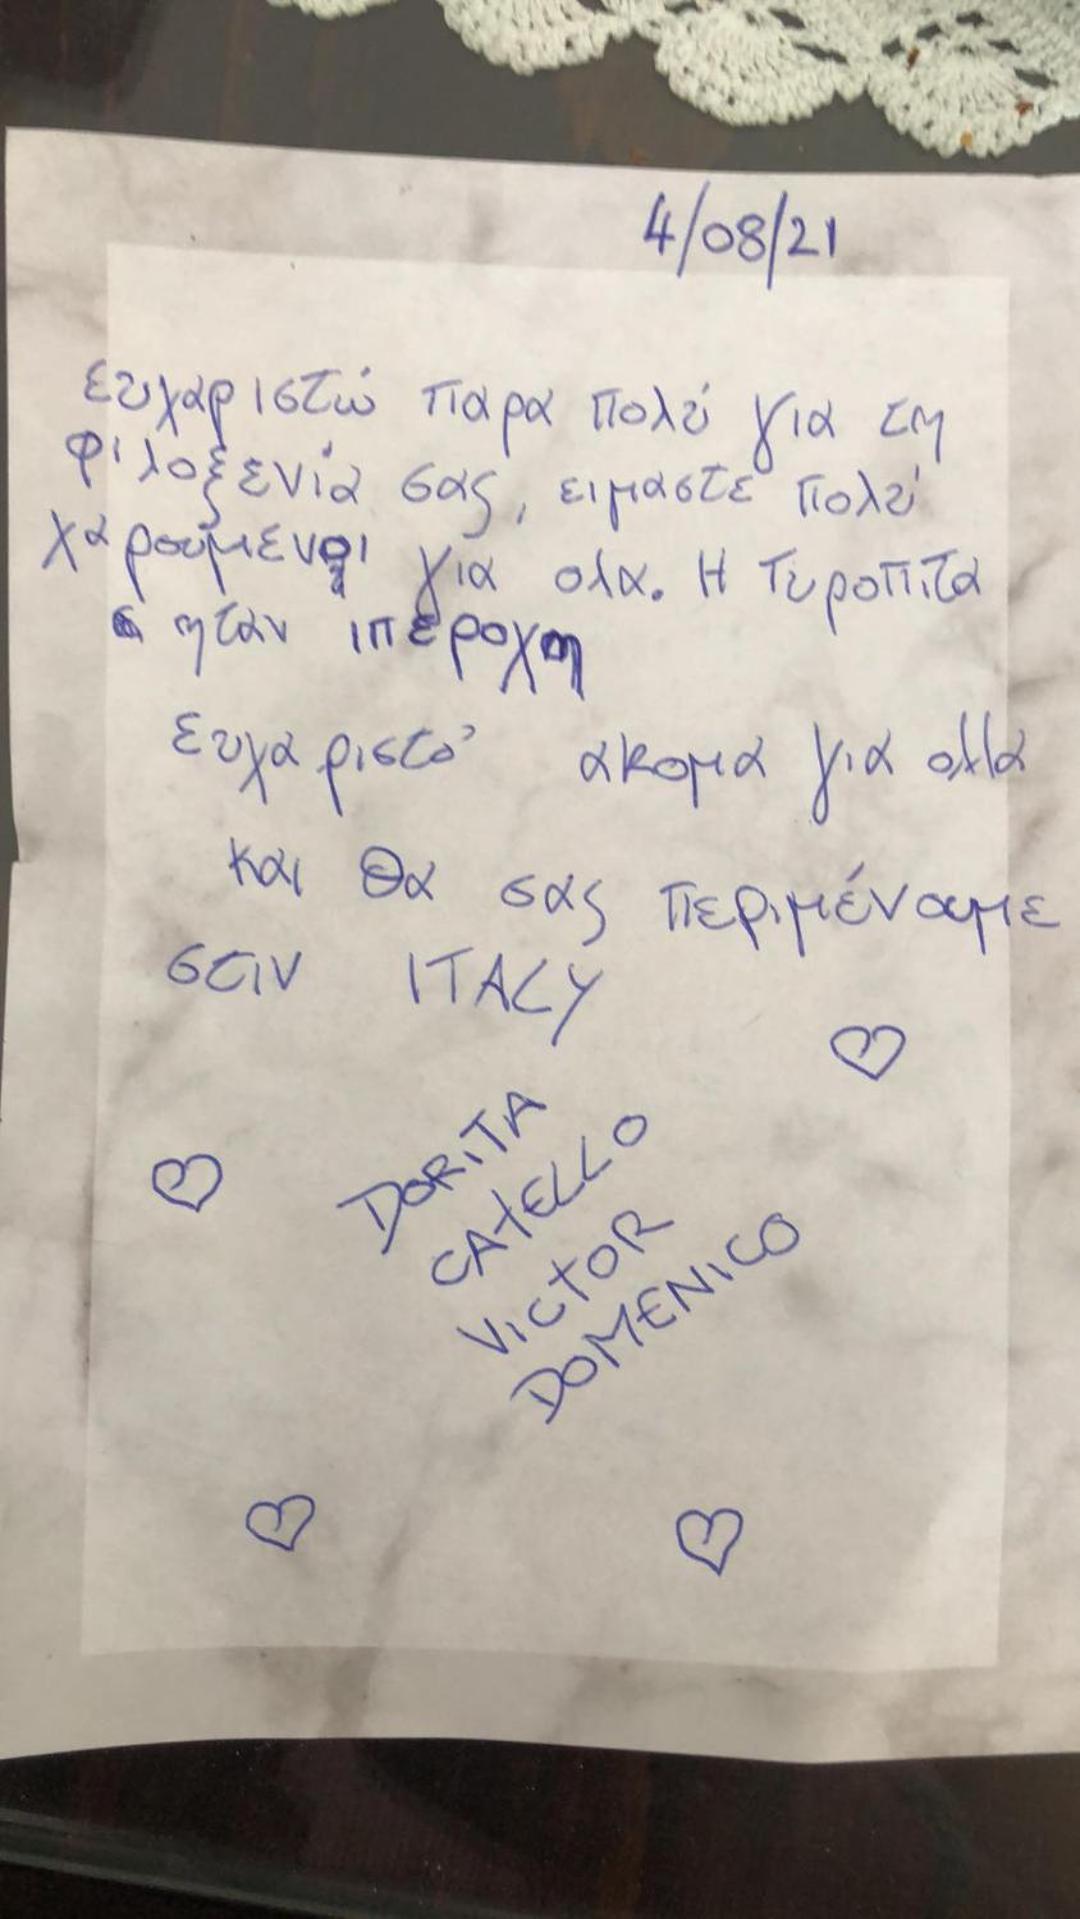 4/08/21
ευχαριστώ παρα πολύ για τη
φιλοξενιά σας, ειμαστε πολύ
χαρούμενοι για ολα. Η τυροπιτα
ηταν ιπεροχη
ευχαριστό ακομα για ολλα
και θα σας περιμένουμε
στιν ITALY
DORiTA
CATELLO
VICTOR
DOMENICO